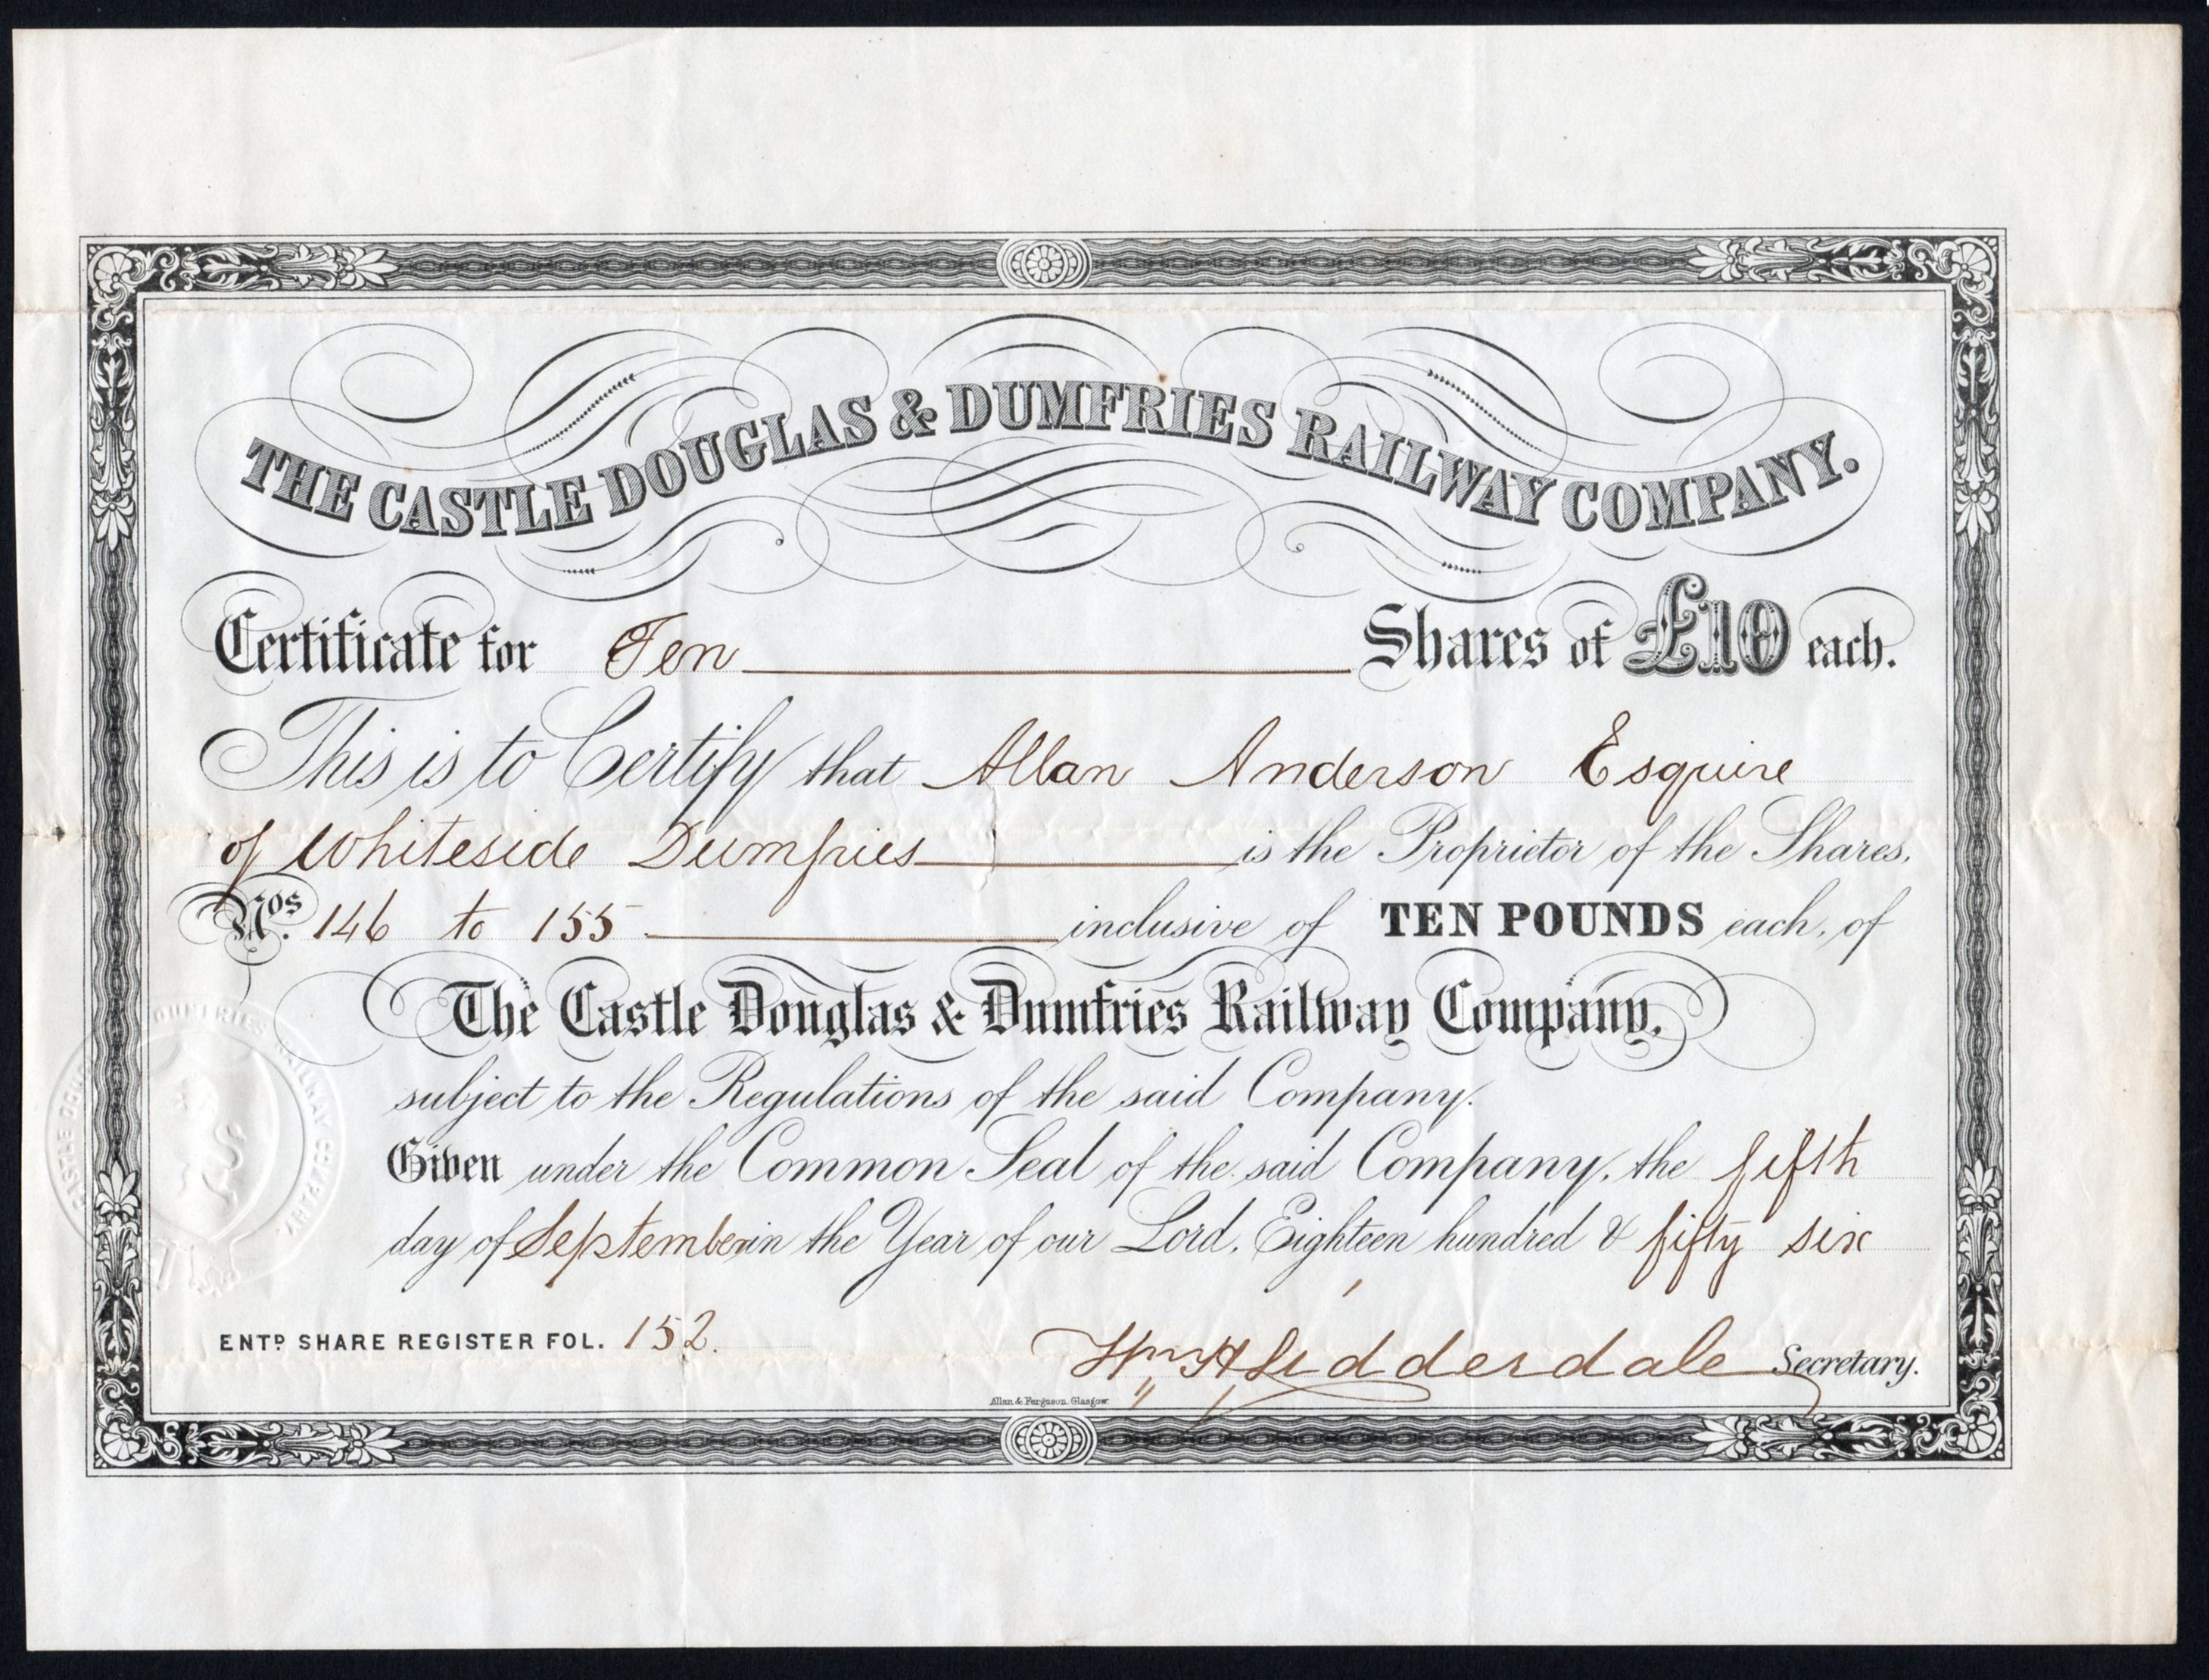 THE CASTLE DOUGLAS & DUMFRIES RAILWAY COMPANY.
Certificate for Ten Shares of £10 each.
This is to Certify that Allan Anderson Esquire
of Whiteside Dumfries is the Proprietor of the Shares,
Nos. 146 to 155 inclusive of TEN POUNDS each, of
The Castle Douglas & Dumfries Railway Company,
subject to the Regulations of the said Company.
Given under the Common Seal of the said Company, the fifth
day of September in the Year of our Lord, Eighteen hundred & fifty six
ENTD SHARE REGISTER FOL. 152.
Wm H Lidderdale Secretary.
Allan & Ferguson. Glasgow.
CASTLE DOUGLAS DUMFRIES RAILWAY COMPANY